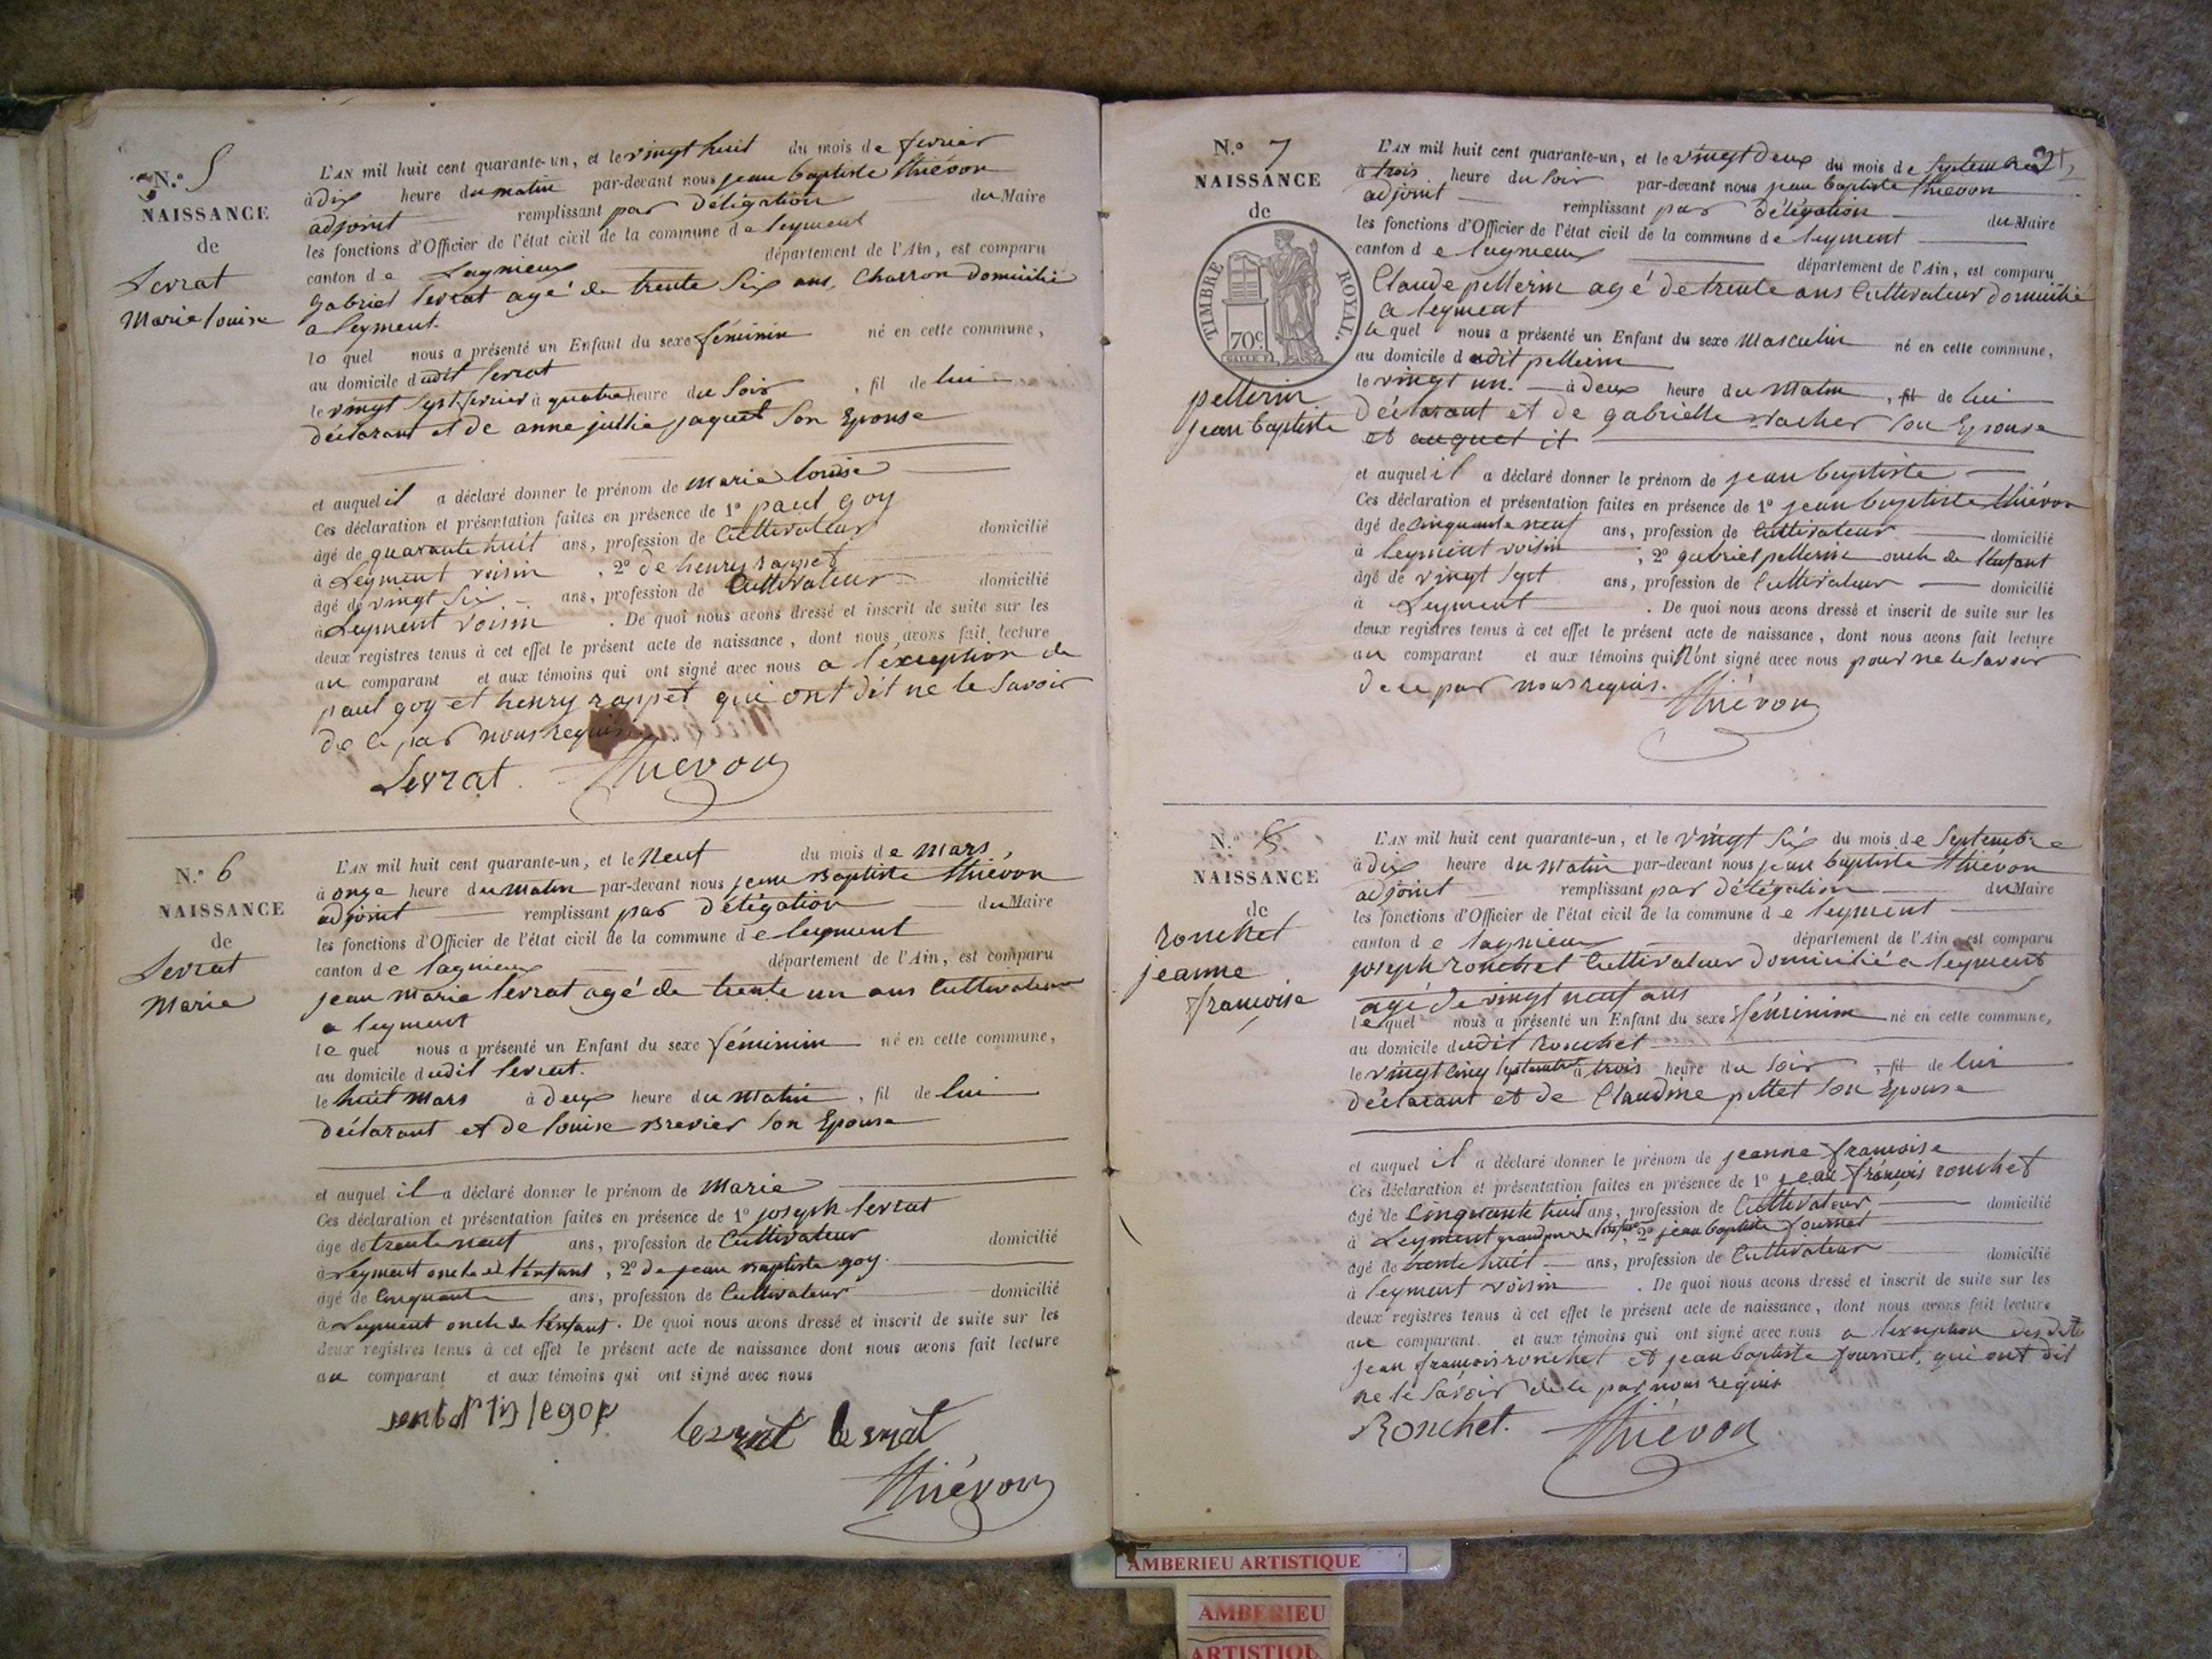 N.º 5
NAISSANCE
de
Levrat
Marie louise
L'AN mil huit cent quarante-un, et le vingt huit du mois de fevrier
à dix heure du matin par-devant nous jean baptiste thiévon
adjoint remplissant par délégation du Maire
les fonctions d'Officier de l'état civil de la commune de leyment
canton de Lagnieux département de l'Ain, est comparu
gabriel levrat agé de trente six ans, Charron domicilié
a leyment.
le quel nous a présenté un Enfant du sexe féminin né en cette commune,
au domicile dudit levrat
le vingt sept fevrier à quatre heure du soir, fil de lui
déclarant et de anne jullie jaquet son Epouse
et auquel il a déclaré donner le prénom de marie louise
Ces déclaration et présentation faites en présence de 1º paul goy
âgé de quarante huit ans, profession de Cultivateur domicilié
à Leyment voisin, 2º de henry rappet
âgé de vingt six ans, profession de Cultivateur domicilié
à Leyment voisin. De quoi nous avons dressé et inscrit de suite sur les
deux registres tenus à cet effet le présent acte de naissance, dont nous avons fait lecture
au comparant et aux témoins qui ont signé avec nous a l'éxception de
paul goy et henry rappet qui ont dit ne le savoir
de ce par nous requis.
Levrat. Thiévon
N.º 6
NAISSANCE
de
Levrat
Marie
L'AN mil huit cent quarante-un, et le neuf du mois de mars,
à onze heure du matin par-devant nous jean Baptiste thiévon
adjoint remplissant par délégation du Maire
les fonctions d'Officier de l'état civil de la commune de leyment
canton de lagnieux département de l'Ain, est comparu
jean marie levrat agé de trente un ans Cultivateur
a leyment
le quel nous a présenté un Enfant du sexe féminin né en cette commune,
au domicile dudit levrat.
le huit mars à deux heure du matin, fil de lui
déclarant et de louise Brevier son Epouse
et auquel il a déclaré donner le prénom de Marie
Ces déclaration et présentation faites en présence de 1º joseph levrat
âge de trente neuf ans, profession de Cultivateur domicilié
à Leyment oncle de l'enfant, 2º de jean Baptiste goy.
âgé de Cinquante ans, profession de Cultivateur domicilié
à Leyment oncle de l'enfant. De quoi nous avons dressé et inscrit de suite sur les
deux registres tenus à cet effet le présent acte de naissance dont nous avons fait lecture
au comparant et aux témoins qui ont signé avec nous
levrat levrat
Thiévon
N.º 7
NAISSANCE
de
TIMBRE ROYAL.
70c
pellerin
jean baptiste
L'AN mil huit cent quarante-un, et le vingt deux du mois de septembre
à trois heure du soir par-devant nous jean baptiste thiévon
adjoint remplissant par délégation du Maire
les fonctions d'Officier de l'état civil de la commune de leyment
canton de lagnieux département de l'Ain, est comparu
Claude pellerin agé de trente ans Cultivateur domicilié
a leyment
le quel nous a présenté un Enfant du sexe Masculin né en cette commune,
au domicile dudit pellerin
le vingt un. à deux heure du matin, fil de lui
déclarant et de gabrielle vacher son Epouse
et auquel il
et auquel il a déclaré donner le prénom de jean baptiste
Ces déclaration et présentation faites en présence de 1º jean baptiste thiévon
âgé de Cinquante neuf ans, profession de Cultivateur domicilié
à leyment voisin; 2º gabriel pellerin oncle de l'enfant
âgé de vingt sept ans, profession de Cultivateur domicilié
à Leyment. De quoi nous avons dressé et inscrit de suite sur les
deux registres tenus à cet effet le présent acte de naissance, dont nous avons fait lecture
au comparant et aux témoins qui n'ont signé avec nous pour ne le savoir
de ce par nous requis.
Thiévon
N.º 8
NAISSANCE
de
ronchet
jeanne
françoise
L'AN mil huit cent quarante-un, et le vingt six du mois de Septembre
à dix heure du matin par-devant nous jean baptiste thiévon
adjoint remplissant par délégation du Maire
les fonctions d'Officier de l'état civil de la commune de leyment
canton de lagnieux département de l'Ain est comparu
joseph ronchet Cultivateur domicilié a leyment
agé de vingt neuf ans
le quel nous a présenté un Enfant du sexe féminin né en cette commune,
au domicile dudit ronchet
le vingt cinq septembre à trois heure du soir, fil de lui
déclarant et de Claudine pettet son Epouse
et auquel il a déclaré donner le prénom de jeanne françoise
Ces déclaration et présentation faites en présence de 1º jean françois ronchet
âgé de Cinquante huit ans, profession de Cultivateur domicilié
à Leyment grand pere de l'enfant, 2º jean baptiste fournet
âgé de trente huit ans, profession de Cultivateur domicilié
à leyment voisin. De quoi nous avons dressé et inscrit de suite sur les
deux registres tenus à cet effet le présent acte de naissance, dont nous avons fait lecture
au comparant et aux témoins qui ont signé avec nous a l'exception desdits
jean françois ronchet et jean baptiste fournet, qui ont dit
ne le savoir de ce par nous requis
Ronchet. Thiévon
AMBERIEU ARTISTIQUE
AMBERIEU
ARTISTIQU